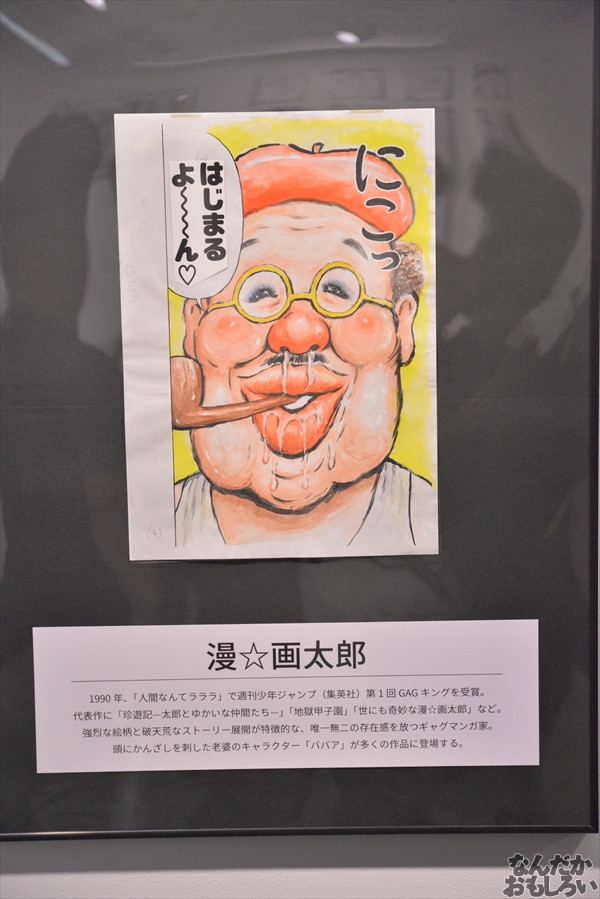 にこっ
はじまる
よ〜〜〜ん♡
(4)
漫☆画太郎
1990 年、「人間なんてラララ」で週刊少年ジャンプ（集英社）第 1 回 GAG キングを受賞。
代表作に「珍遊記―太郎とゆかいな仲間たち―」「地獄甲子園」「世にも奇妙な漫☆画太郎」など。
強烈な絵柄と破天荒なストーリー展開が特徴的な、唯一無二の存在感を放つギャグマンガ家。
頭にかんざしを刺した老婆のキャラクター「ババア」が多くの作品に登場する。
なんだか
おもしろい